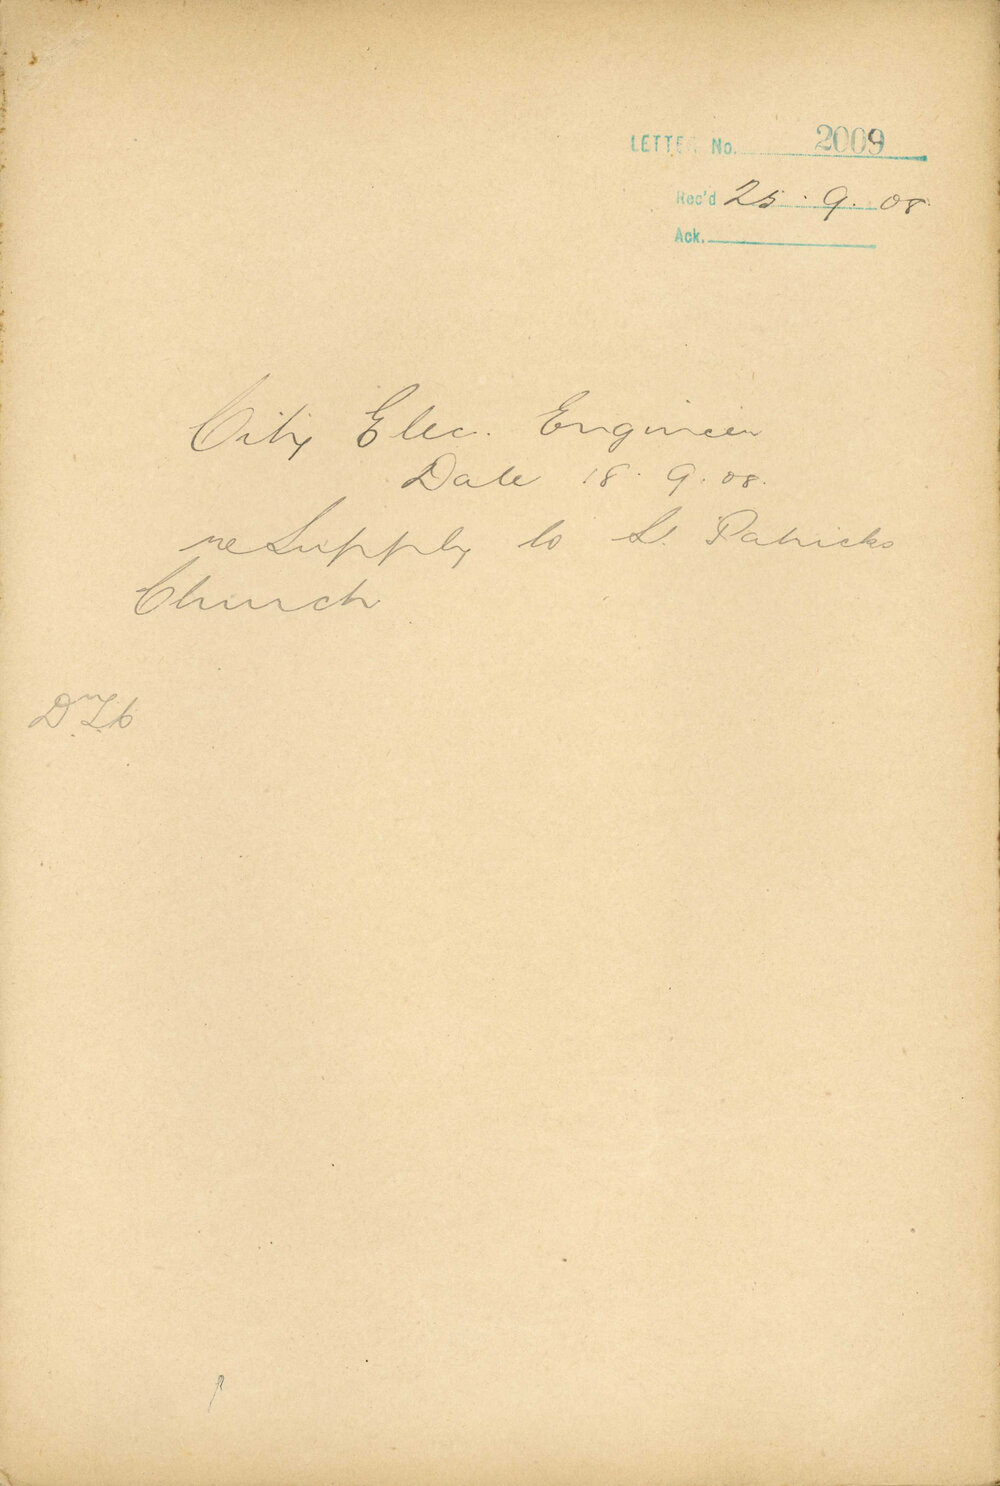 LETTER No. 2009
Rec'd 25.9.08.
Ack.
City Elec. Engineer
Date 18.9.08.
re Supply to St. Patricks
Church